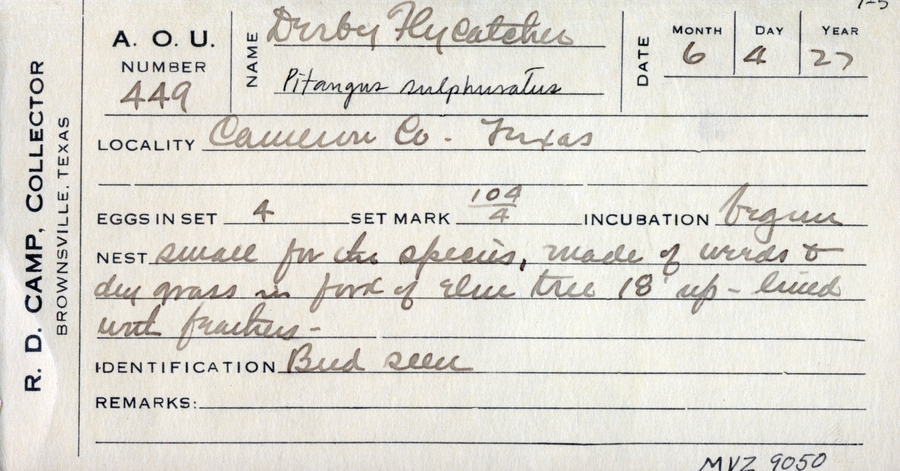 1-5
R. D. CAMP, COLLECTOR
BROWNSVILLE, TEXAS
A. O. U.
NUMBER
449
NAME Derby Flycatcher
Pitangus sulphuratus
DATE
MONTH DAY YEAR
6 4 27
LOCALITY Cameron Co. Texas
EGGS IN SET 4 SET MARK 104/4 INCUBATION begun
NEST small for the species, made of weeds &
dry grass in fork of elm tree 18' up - lined
with feathers -
IDENTIFICATION Bird seen
REMARKS:
MVZ 9050